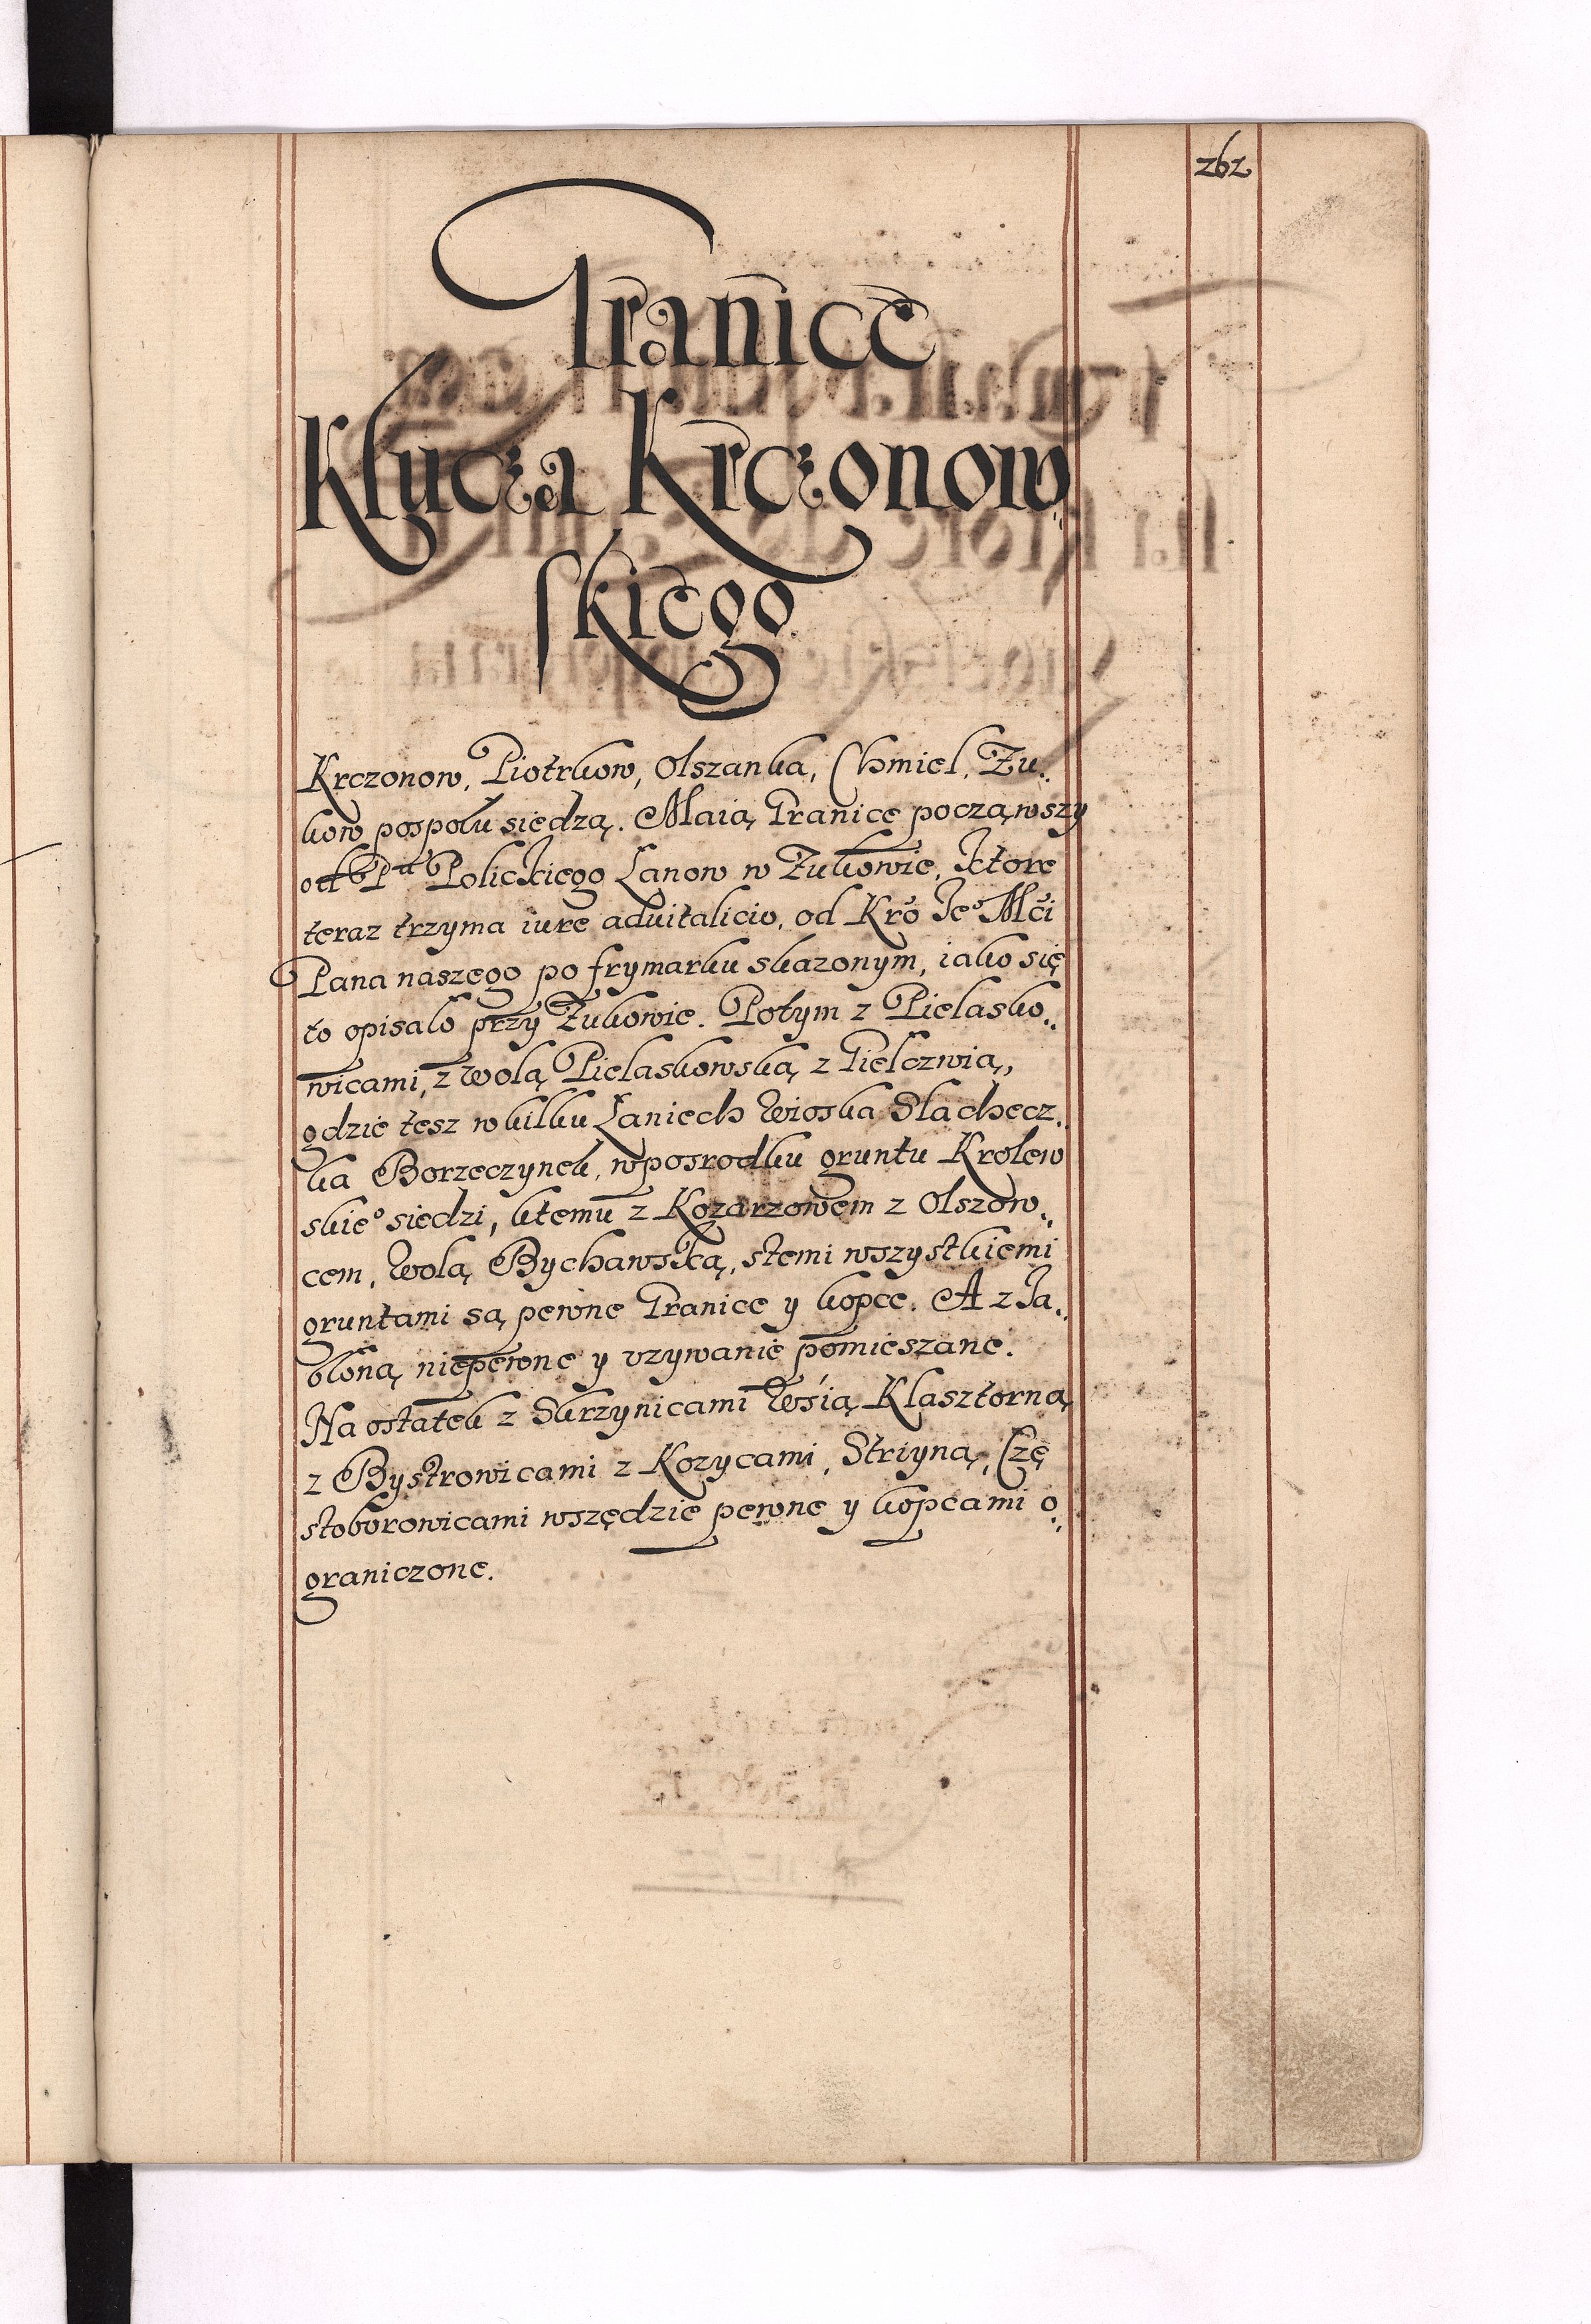 262
Granice
Klucza Krczonow
skiego
Krczonow, Piotrkow, Olszanka, Chmiel, Zu.,
kow pospolu siedzą. Maią Granice począwszy
od Pa Polickiego Lanow w Zukowie, Ktore
teraz trzyma iure aduitalicio, od Kro Jeo Mci
Pana naszego po frymarku skazonym, iako się
to opisalo przy Zukowie. Potym z Pielasko.,
wicami, z wolą Pielaskowską z Gielczwią,
gdzie tesz w kilku Laniech Wioska Slachecz.,
ka Borzęczynek, wposrodku gruntu Krolew
skieo siedzi, ktemu z Kozarzowem z Olszow.,
cem, Wolą Bychawską, stemi wszystkiemi
gruntami są pewne Granice y kopce. A z Ja.,
bloną niepewne y vzywanie pomieszane.
Na ostatek z Skrzynicami Wsią Klasztorną
z Bystrowicami z Kozycami, Striyną, Czę
stoborowicami wszędzie pewne y kopcami o.,
graniczone.